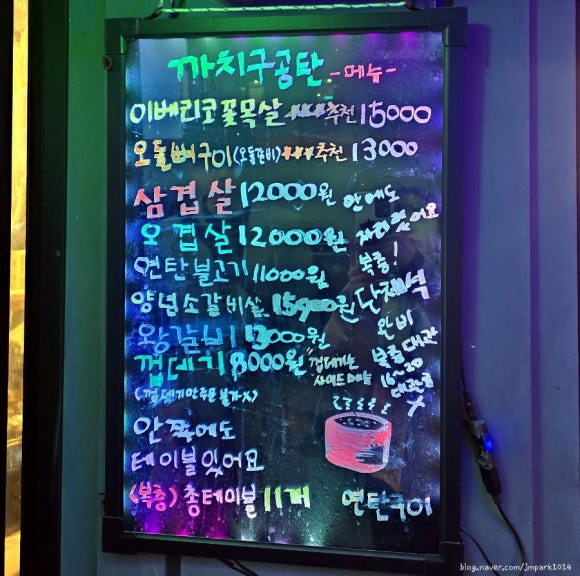 까치구공탄 -메뉴-
이베리코꽃목살 ★★★추천 15000
오돌뼈구이(오돌갈비)★★★추천 13000
삼겹살 12000원
오겹살 12000원
연탄불고기 11000원
양념소갈비살 15900원
왕갈비 13000원
껍데기 8000원
"껍데기는
사이드메뉴
(껍데기만 주문 불가X)
안에도
자리 있어요
복층!
단체석
완비
복층대관
16~20
대관료
X
안쪽에도
테이블있어요
(복층) 총테이블 11개
연탄구이
blog.naver.com/jmpark1014